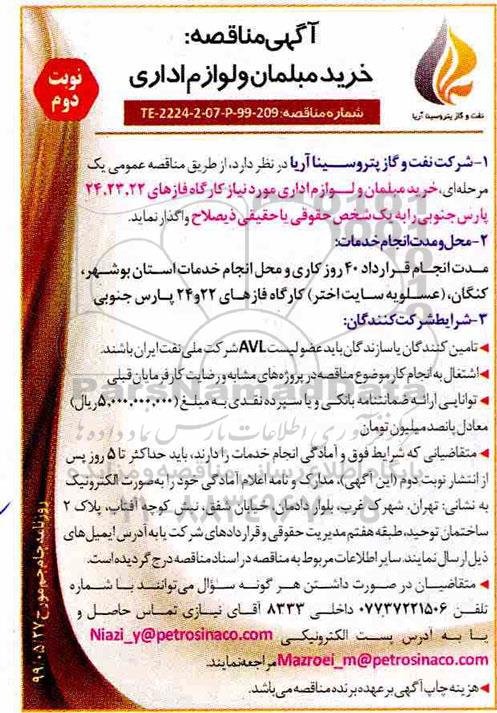 آگهی مناقصه:
خرید مبلمان و لوازم اداری
نوبت
دوم
شماره مناقصه: TE-2224-2-07-P-99-209
نفت و گاز پتروسینا آریا
۱- شرکت نفت و گاز پتروسینا آریا در نظر دارد، از طریق مناقصه عمومی یک
مرحله‌ای، خرید مبلمان و لوازم اداری مورد نیاز کارگاه فازهای ۲۴،۲۳،۲۲
پارس جنوبی را به یک شخص حقوقی یا حقیقی ذیصلاح واگذار نماید.
۲- محل و مدت انجام خدمات:
مدت انجام قرارداد ۴۰ روز کاری و محل انجام خدمات استان بوشهر،
کنگان، (عسلویه سایت اختر) کارگاه فازهای ۲۲ و ۲۴ پارس جنوبی
۳- شرایط شرکت کنندگان:
تامین کنندگان یا سازندگان باید عضو لیست AVL شرکت ملی نفت ایران باشند.
اشتغال به انجام کار موضوع مناقصه در پروژه‌های مشابه و رضایت کارفرمایان قبلی
توانایی ارائه ضمانتنامه بانکی و یا سپرده نقدی به مبلغ (۵,۰۰۰,۰۰۰,۰۰۰ ریال)
معادل پانصد میلیون تومان
متقاضیانی که شرایط فوق و آمادگی انجام خدمات را دارند، باید حداکثر تا ۵ روز پس
از انتشار نوبت دوم (این آگهی)، مدارک و نامه اعلام آمادگی خود را به صورت الکترونیک
به نشانی: تهران، شهرک غرب، بلوار دادمان، خیابان شفق، نبش کوچه آفتاب، پلاک ۲
ساختمان توحید، طبقه هفتم مدیریت حقوقی و قراردادهای شرکت یا به آدرس ایمیل‌های
ذیل ارسال نمایند. سایر اطلاعات مربوط به مناقصه در اسناد مناقصه درج گردیده است.
متقاضیان در صورت داشتن هر گونه سؤال می‌توانند با شماره
تلفن ۰۷۷۳۷۲۲۱۵۰۶ داخلی ۸۳۳۳ آقای نیازی تماس حاصل و
یا به آدرس پست الکترونیکی Niazi_y@petrosinaco.com
Mazroei_m@petrosinaco.com مراجعه نمایند.
هزینه چاپ آگهی بر عهده برنده مناقصه می‌باشد.
روزنامه جام جم مورخ ۹۹/۰۵/۲۷
ParsNamadData
پایگاه اطلاع رسانی مناقصه و مزایده